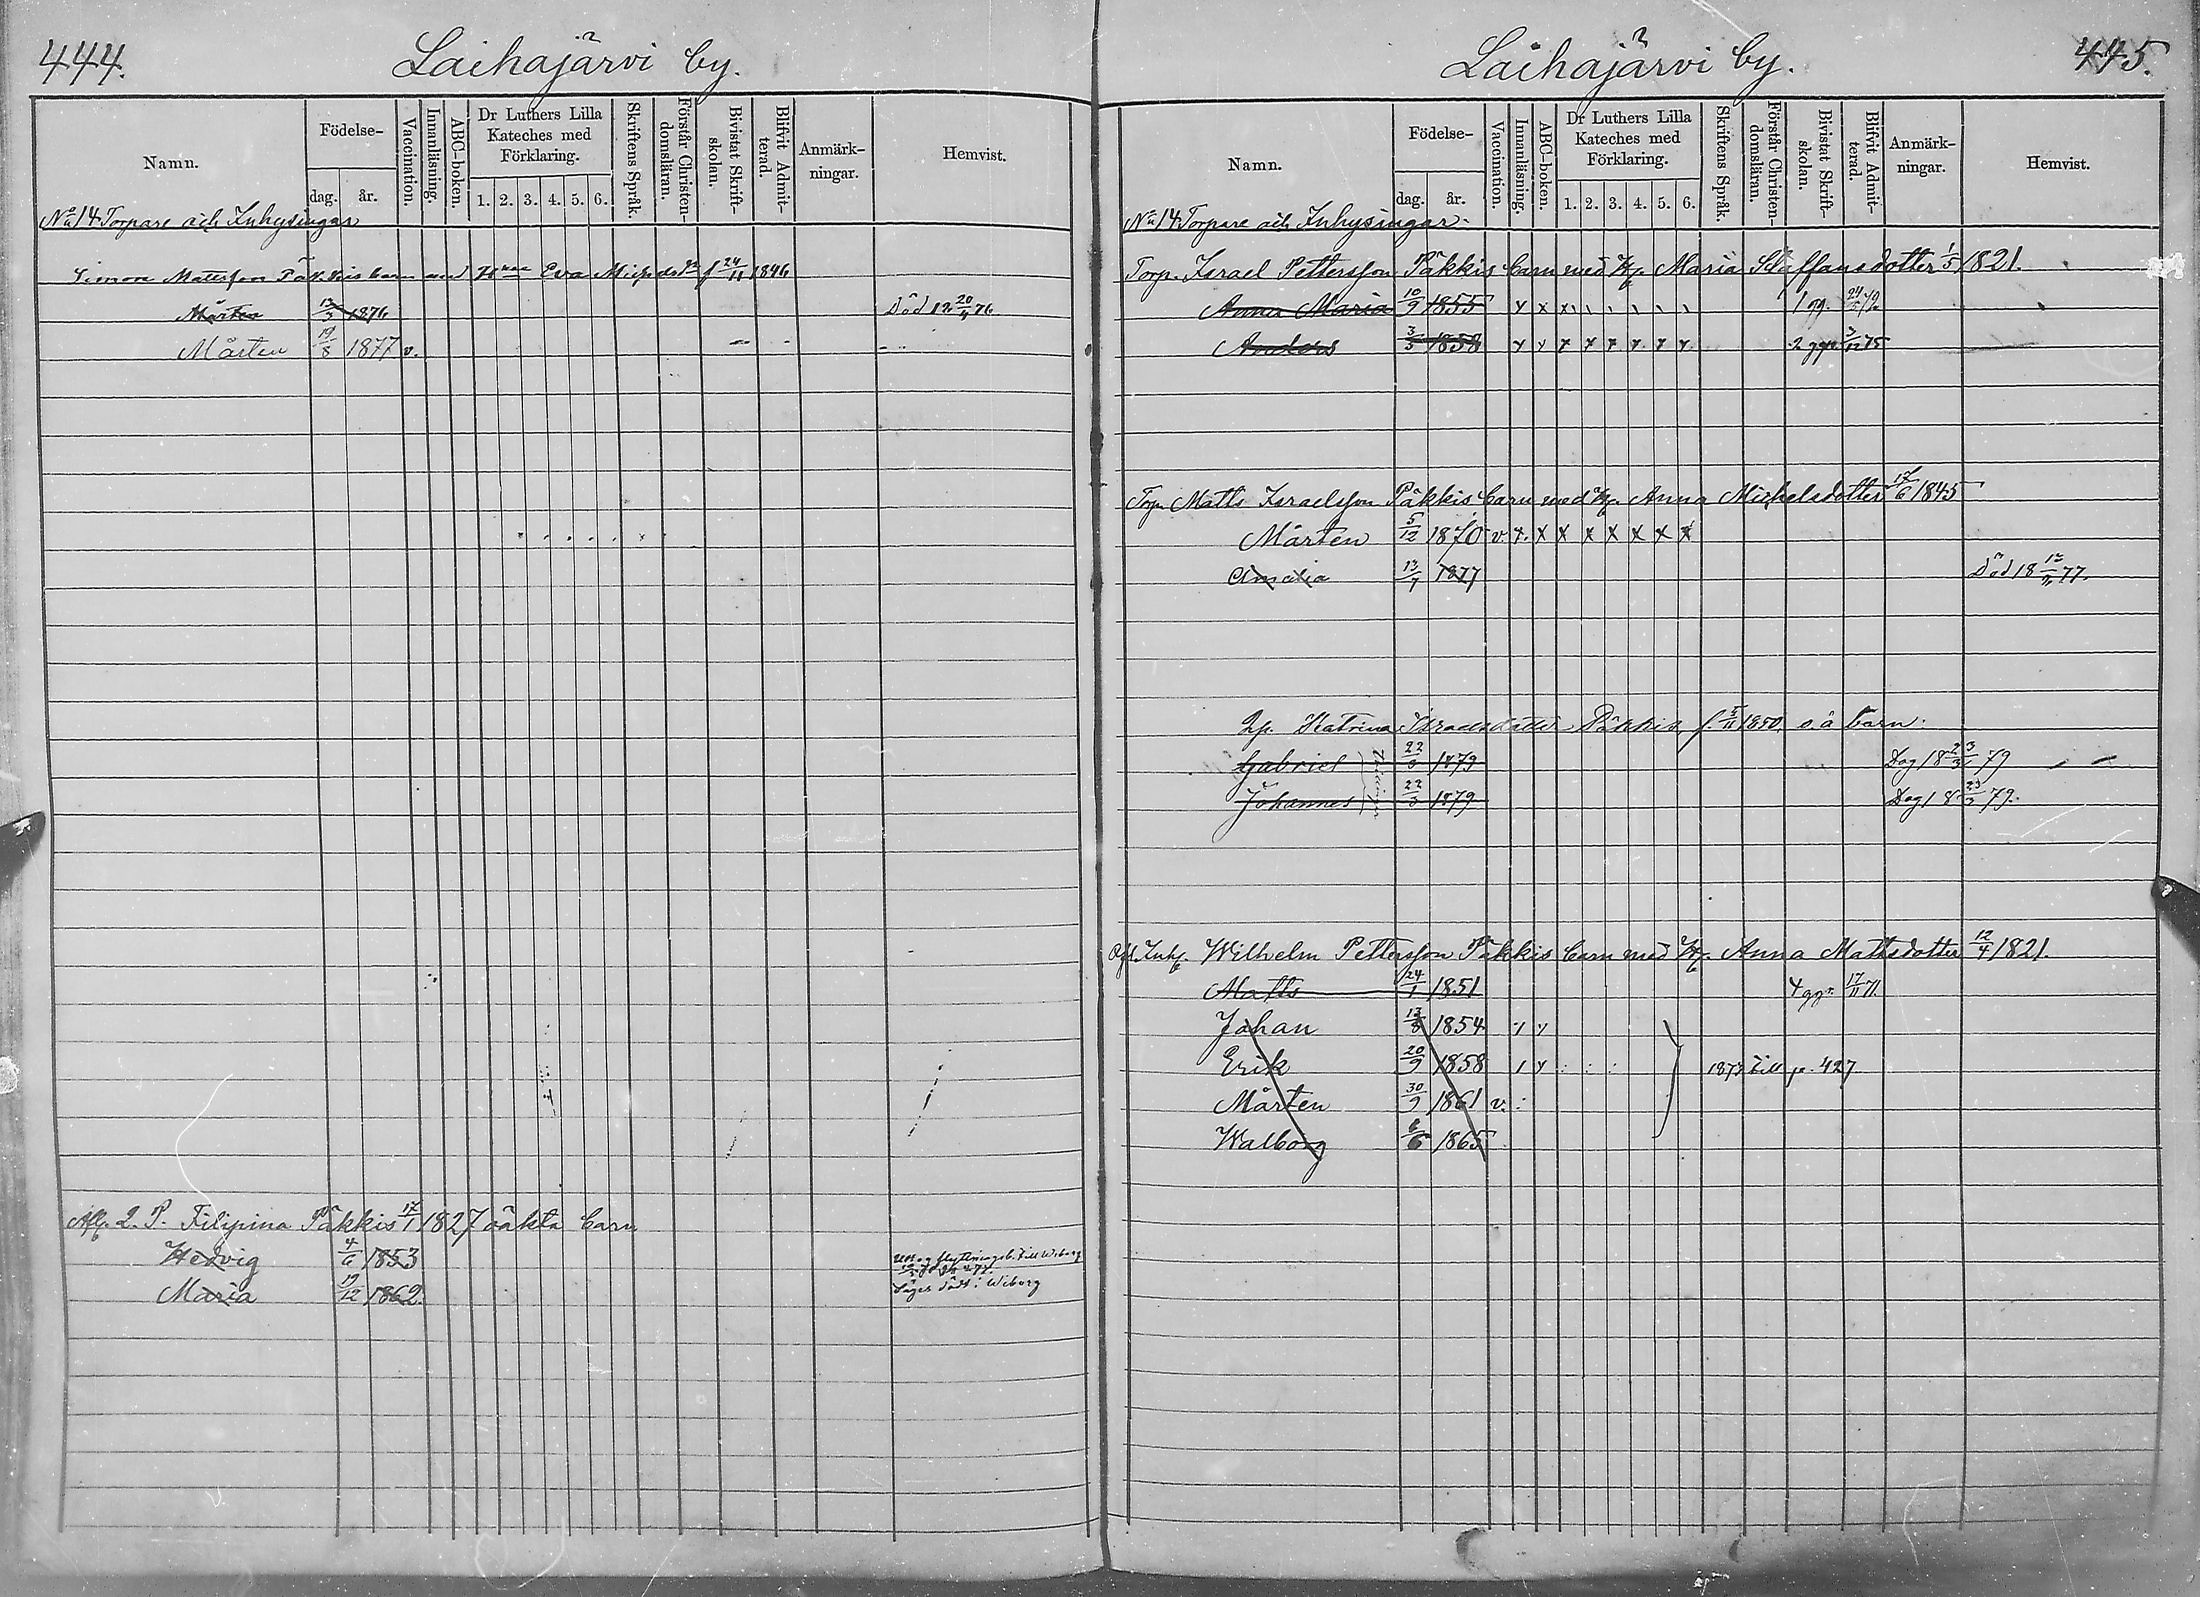 444.
Laihajärvi by.
Namn.
Födelse-
dag. år.
Vaccination.
Innanläsning.
ABC-boken.
Dr Luthers Lilla Kateches med Förklaring.
1. 2. 3. 4. 5. 6.
Skriftens Språk.
Förstår Christen-domsläran.
Bivistat Skrift-skolan.
Blifvit Admit-terad.
Anmärk-ningar.
Hemvist.
No 14 Torpare och Inhysingar
Simon Mattsson Päkkis barn med Eva f 24/11 1846
Mårten 13/3 1876 Död 18 20/4 76
Mårten 19/8 1877 v.
Afl. Q. P. Filipina Päkkis 17/1 1827 oäkta barn
Hedvig 4/6 1853 flyttningsb. till Wiborg
Maria 19/12 1862. Säges död i Wiborg
445.
Laihajärvi by.
Namn.
Födelse-
dag. år.
Vaccination.
Innanläsning.
ABC-boken.
Dr Luthers Lilla Kateches med Förklaring.
1. 2. 3. 4. 5. 6.
Skriftens Språk.
Förstår Christen-domsläran.
Bivistat Skrift-skolan.
Blifvit Admit-terad.
Anmärk-ningar.
Hemvist.
No 14 Torpare och Inhysingar.
Torp. Israel Pettersson Päkkis barn med H. Maria Staffansdotter 1/5 1821.
Anna Maria 10/9 1855 x x x 1 gg.
Anders 3/3 1858 x x x x x x x x 2 ggr 75
Torp. Matts Israelsson Päkkis barn med H. Anna Michelsdotter 17/6 1845
Mårten 5/12 1870 v. x. x x x x x x x
Amalia 13/7 1877 Död 18 77.
Qp. Katrina Israelsdotter Päkkis, f. 5/11 1850, o.ä barn:
Gabriel 22/3 1879 Dog 18 23/3 79
Johannes 22/3 1879 Dog 18 23/3 79.
Afl. Inh. Wilhelm Pettersson Päkkis barn med H. Anna Mattsdotter 12/4 1821.
Matts 24/1 1851 4 ggr. 17/11 71
Johan 13/8 1854
Erik 20/9 1858 1873 till p. 427
Mårten 30/9 1861 v.
Walborg 6/6 1865